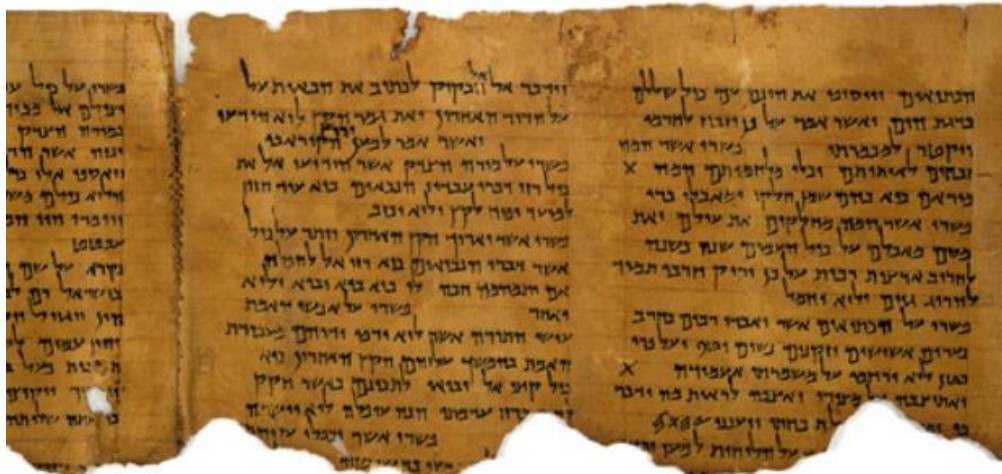 הכתיאים ויוסיפו את הונם עם כול שללם
כדגת הים ואשר אמר על כן יזבח לחרמו
ויקטר למכמרתו פשרו אשר המה
זבחים לאותותם וכלי מלחמותם המה X
מוראם כיא בהם שמן חלקו ומאכלו ברי
פשרו אשר המה מחלקים את עולם ואת
מסם מאכלם על כול העמים שנה בשנה
לחריב ארצות רבות על כן יריק חרבו תמיד
להרוג גוים ולוא יחמל
פשרו על הכתיאים אשר יאבדו רבים בחרב
נערים אשישים וזקנים נשים וטף ועל פרי
בטן לוא ירחמו על משמרתי אעמודה X
ואתיצבה על מצורי ואצפה לראות מה ידבר
תוכחתי ויענני 𐤉𐤄𐤅𐤄
על הלוחות למען
וידבר אל אל חבקוק לכתוב את הבאות על
על הדור האחרון ואת גמר הקץ לוא הודעו
ואשר אמר למען ירוץ הקורא בו
פשרו על מורה הצדק אשר הודיעו אל את
כול רזי דברי עבדיו הנבאים כיא עוד חזון
למועד יפח לקץ ולוא יכזב
פשרו אשר יארוך הקץ האחרון ויתר על כול
אשר דברו הנביאים כיא רזי אל להפלה
אם יתמהמה חכה לו כיא בוא יבוא ולוא
יאחר פשרו על אנשי האמת
עושי התורה אשר לוא ירפו ידיהם מעבודת
האמת בהמשך עליהם הקץ האחרון כיא
כול קיצי אל יבואו לתכונם כאשר חקק
ערמתו הנה עופלה לוא יושרה
פשרו אשר יכפלו עליהם
פשרו על כול
יצילם אל
הצדק
אשר
ויאספו אלו
הלוא כולם
ויומרו הוי
עבטט
נקרא על שם
בישראל
הון ויגזול
והון עמים